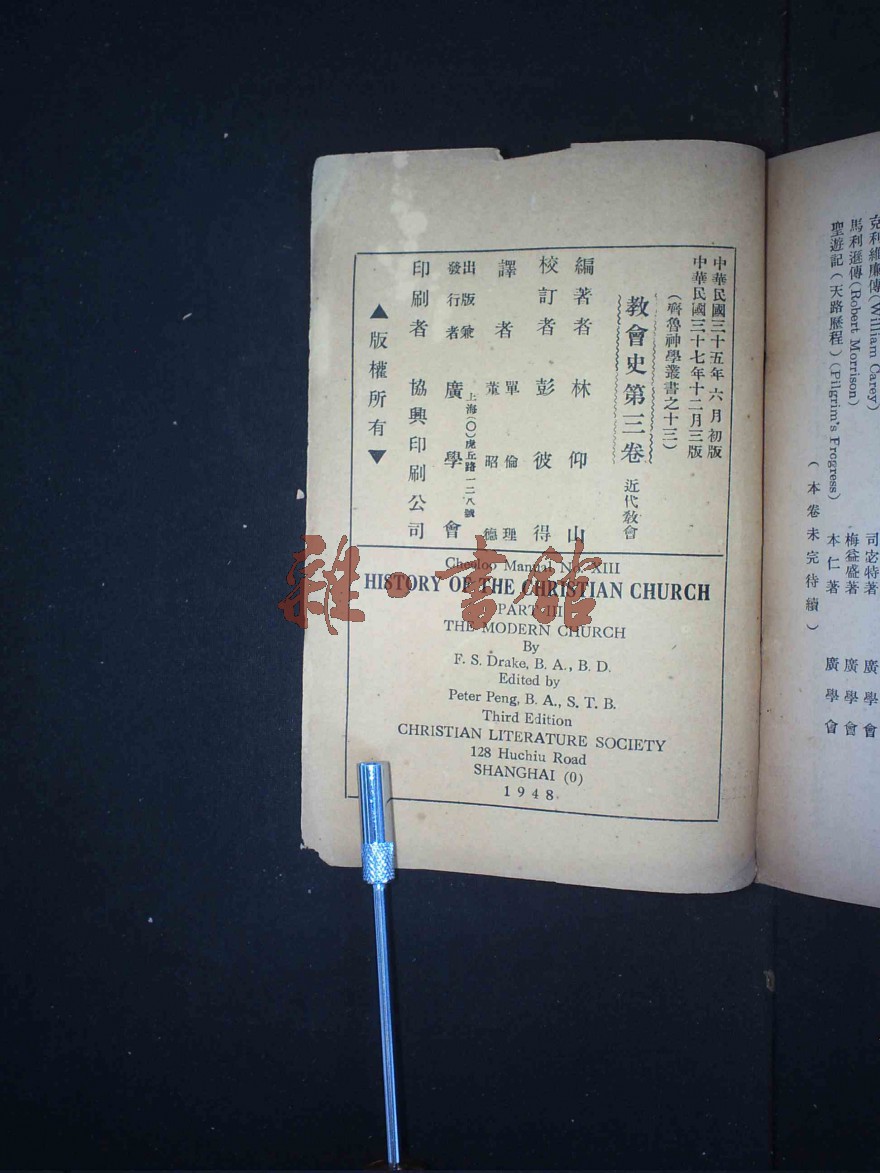 克利維廉傳(William Carey) 司宓特著 廣學會
馬利遜傳(Robert Morrison) 梅益盛著 廣學會
聖遊記(天路歷程)(Pilgrim's Progress) 本仁著 廣學會
(本卷未完待續)
中華民國三十五年六月初版
中華民國三十七年十二月三版
(齊魯神學叢書之十三)
教會史第三卷 近代教會
編著者 林仰山
校訂者 彭彼得
譯者 單倫理 董昭德
出版兼發行者 上海(〇)虎丘路一二八號 廣學會
印刷者 協興印刷公司
▲版權所有▼
Cheeloo Manual No. XIII
HISTORY OF THE CHRISTIAN CHURCH
PART III
THE MODERN CHURCH
By
F. S. Drake, B. A., B. D.
Edited by
Peter Peng, B. A., S. T. B.
Third Edition
CHRISTIAN LITERATURE SOCIETY
128 Huchiu Road
SHANGHAI (0)
1948
雜·書館